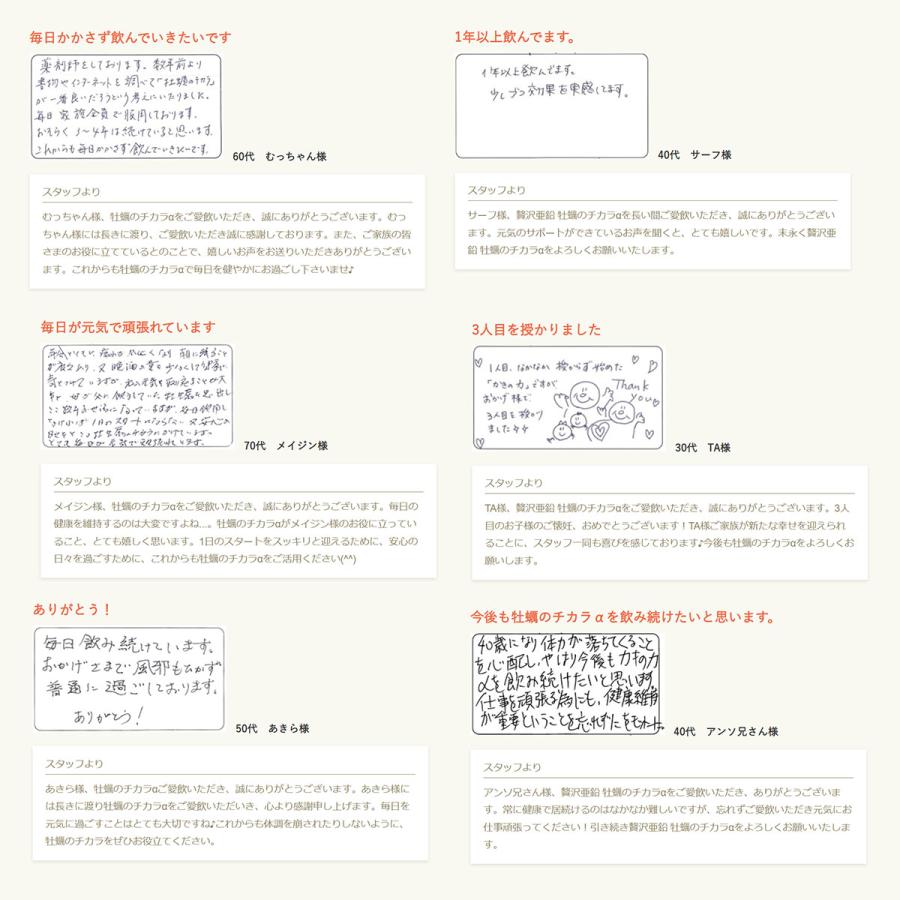 毎日かかさず飲んでいきたいです
薬剤師をしております。数年前より
書物やインターネットを調べて「牡蠣のチカラ」
が一番良いだろうという考えにいたりました。
毎日家族全員で服用しております。
おそらく3〜4年は続けていると思います。
これからも毎日かかさず飲んでいきたいです。
60代 むっちゃん様
スタッフより
むっちゃん様、牡蠣のチカラαをご愛飲いただき、誠にありがとうございます。むっ
ちゃん様には長きに渡り、ご愛飲いただき誠に感謝しております。また、ご家族の皆
さまのお役に立てているとのことで、嬉しいお声をお送りいただきありがとうござい
ます。これからも牡蠣のチカラαで毎日を健やかにお過ごし下さいませ♪
1年以上飲んでます。
1年以上飲んでます。
少しづつ効果を実感してます。
40代 サーフ様
スタッフより
サーフ様、贅沢亜鉛 牡蠣のチカラαを長い間ご愛飲いただき、誠にありがとうござい
ます。元気のサポートができているお声を聞くと、とても嬉しいです。末永く贅沢亜
鉛 牡蠣のチカラαをよろしくお願いいたします。
毎日が元気で頑張れています
70代 メイジン様
スタッフより
メイジン様、牡蠣のチカラαをご愛飲いただき、誠にありがとうございます。毎日の
健康を維持するのは大変ですよね…。牡蠣のチカラαがメイジン様のお役に立ってい
ること、とても嬉しく思います。1日のスタートをスッキリと迎えるために、安心の
日々を過ごすために、これからも牡蠣のチカラαをご活用ください(^^)
3人目を授かりました
1人目、なかなか授からず始めた
「かきの力」ですが
おかげ様で
3人目を授かり
ました
Thank
you
30代 TA様
スタッフより
TA様、贅沢亜鉛 牡蠣のチカラαをご愛飲いただき、誠にありがとうございます。3人
目のお子様のご懐妊、おめでとうございます！TA様ご家族が新たな幸せを迎えられ
ることに、スタッフ一同も喜びを感じております♪今後も牡蠣のチカラαをよろしくお
願いします。
ありがとう！
毎日飲み続けています。
おかげさまで風邪もひかず
普通に過ごしております。
ありがとう！
50代 あきら様
スタッフより
あきら様、牡蠣のチカラαご愛飲いただき、誠にありがとうございます。あきら様に
は長きに渡り牡蠣のチカラαをご愛飲いただいき、心より感謝申し上げます。毎日を
元気に過ごすことはとても大切ですね♪これからも体調を崩されたりしないように、
牡蠣のチカラをぜひお役立てください。
今後も牡蠣のチカラαを飲み続けたいと思います。
40歳になり体力が落ちてくること
を心配し、やはり今後もカキの力
αを飲み続けたいと思います。
仕事を頑張る為にも、健康維持
が重要ということを忘れずに
40代 アンソ兄さん様
スタッフより
アンソ兄さん様、贅沢亜鉛 牡蠣のチカラαをご愛飲いただき、ありがとうございま
す。常に健康で居続けるのはなかなか難しいですが、忘れずご愛飲いただき元気にお
仕事頑張ってください！引き続き贅沢亜鉛 牡蠣のチカラαをよろしくお願いいたしま
す。